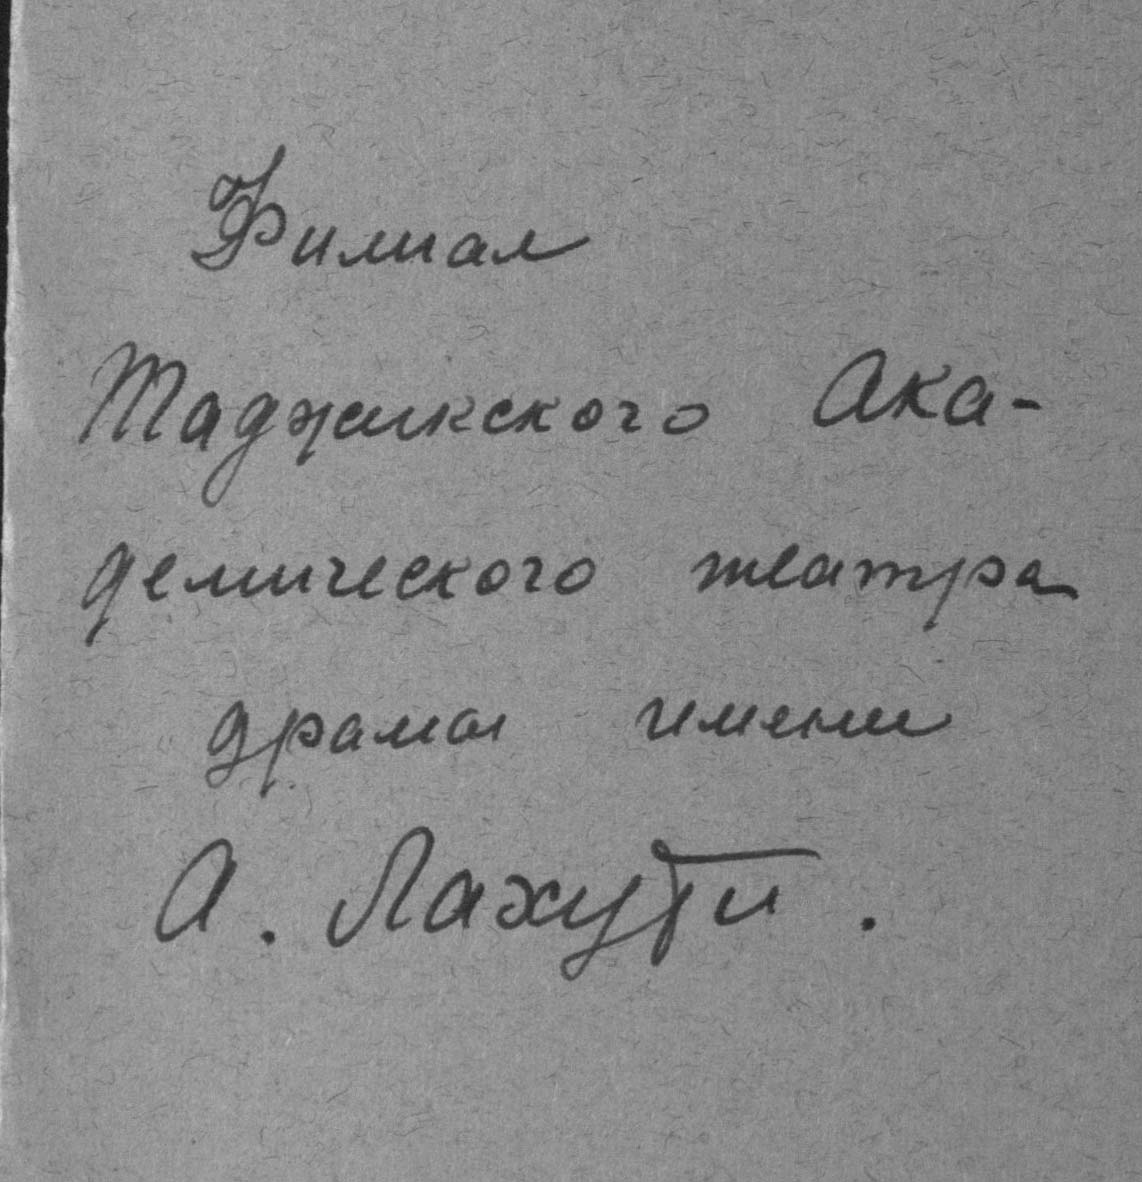 Филиал
Таджикского Ака-
демического театра
драмы имени
А. Лахути.